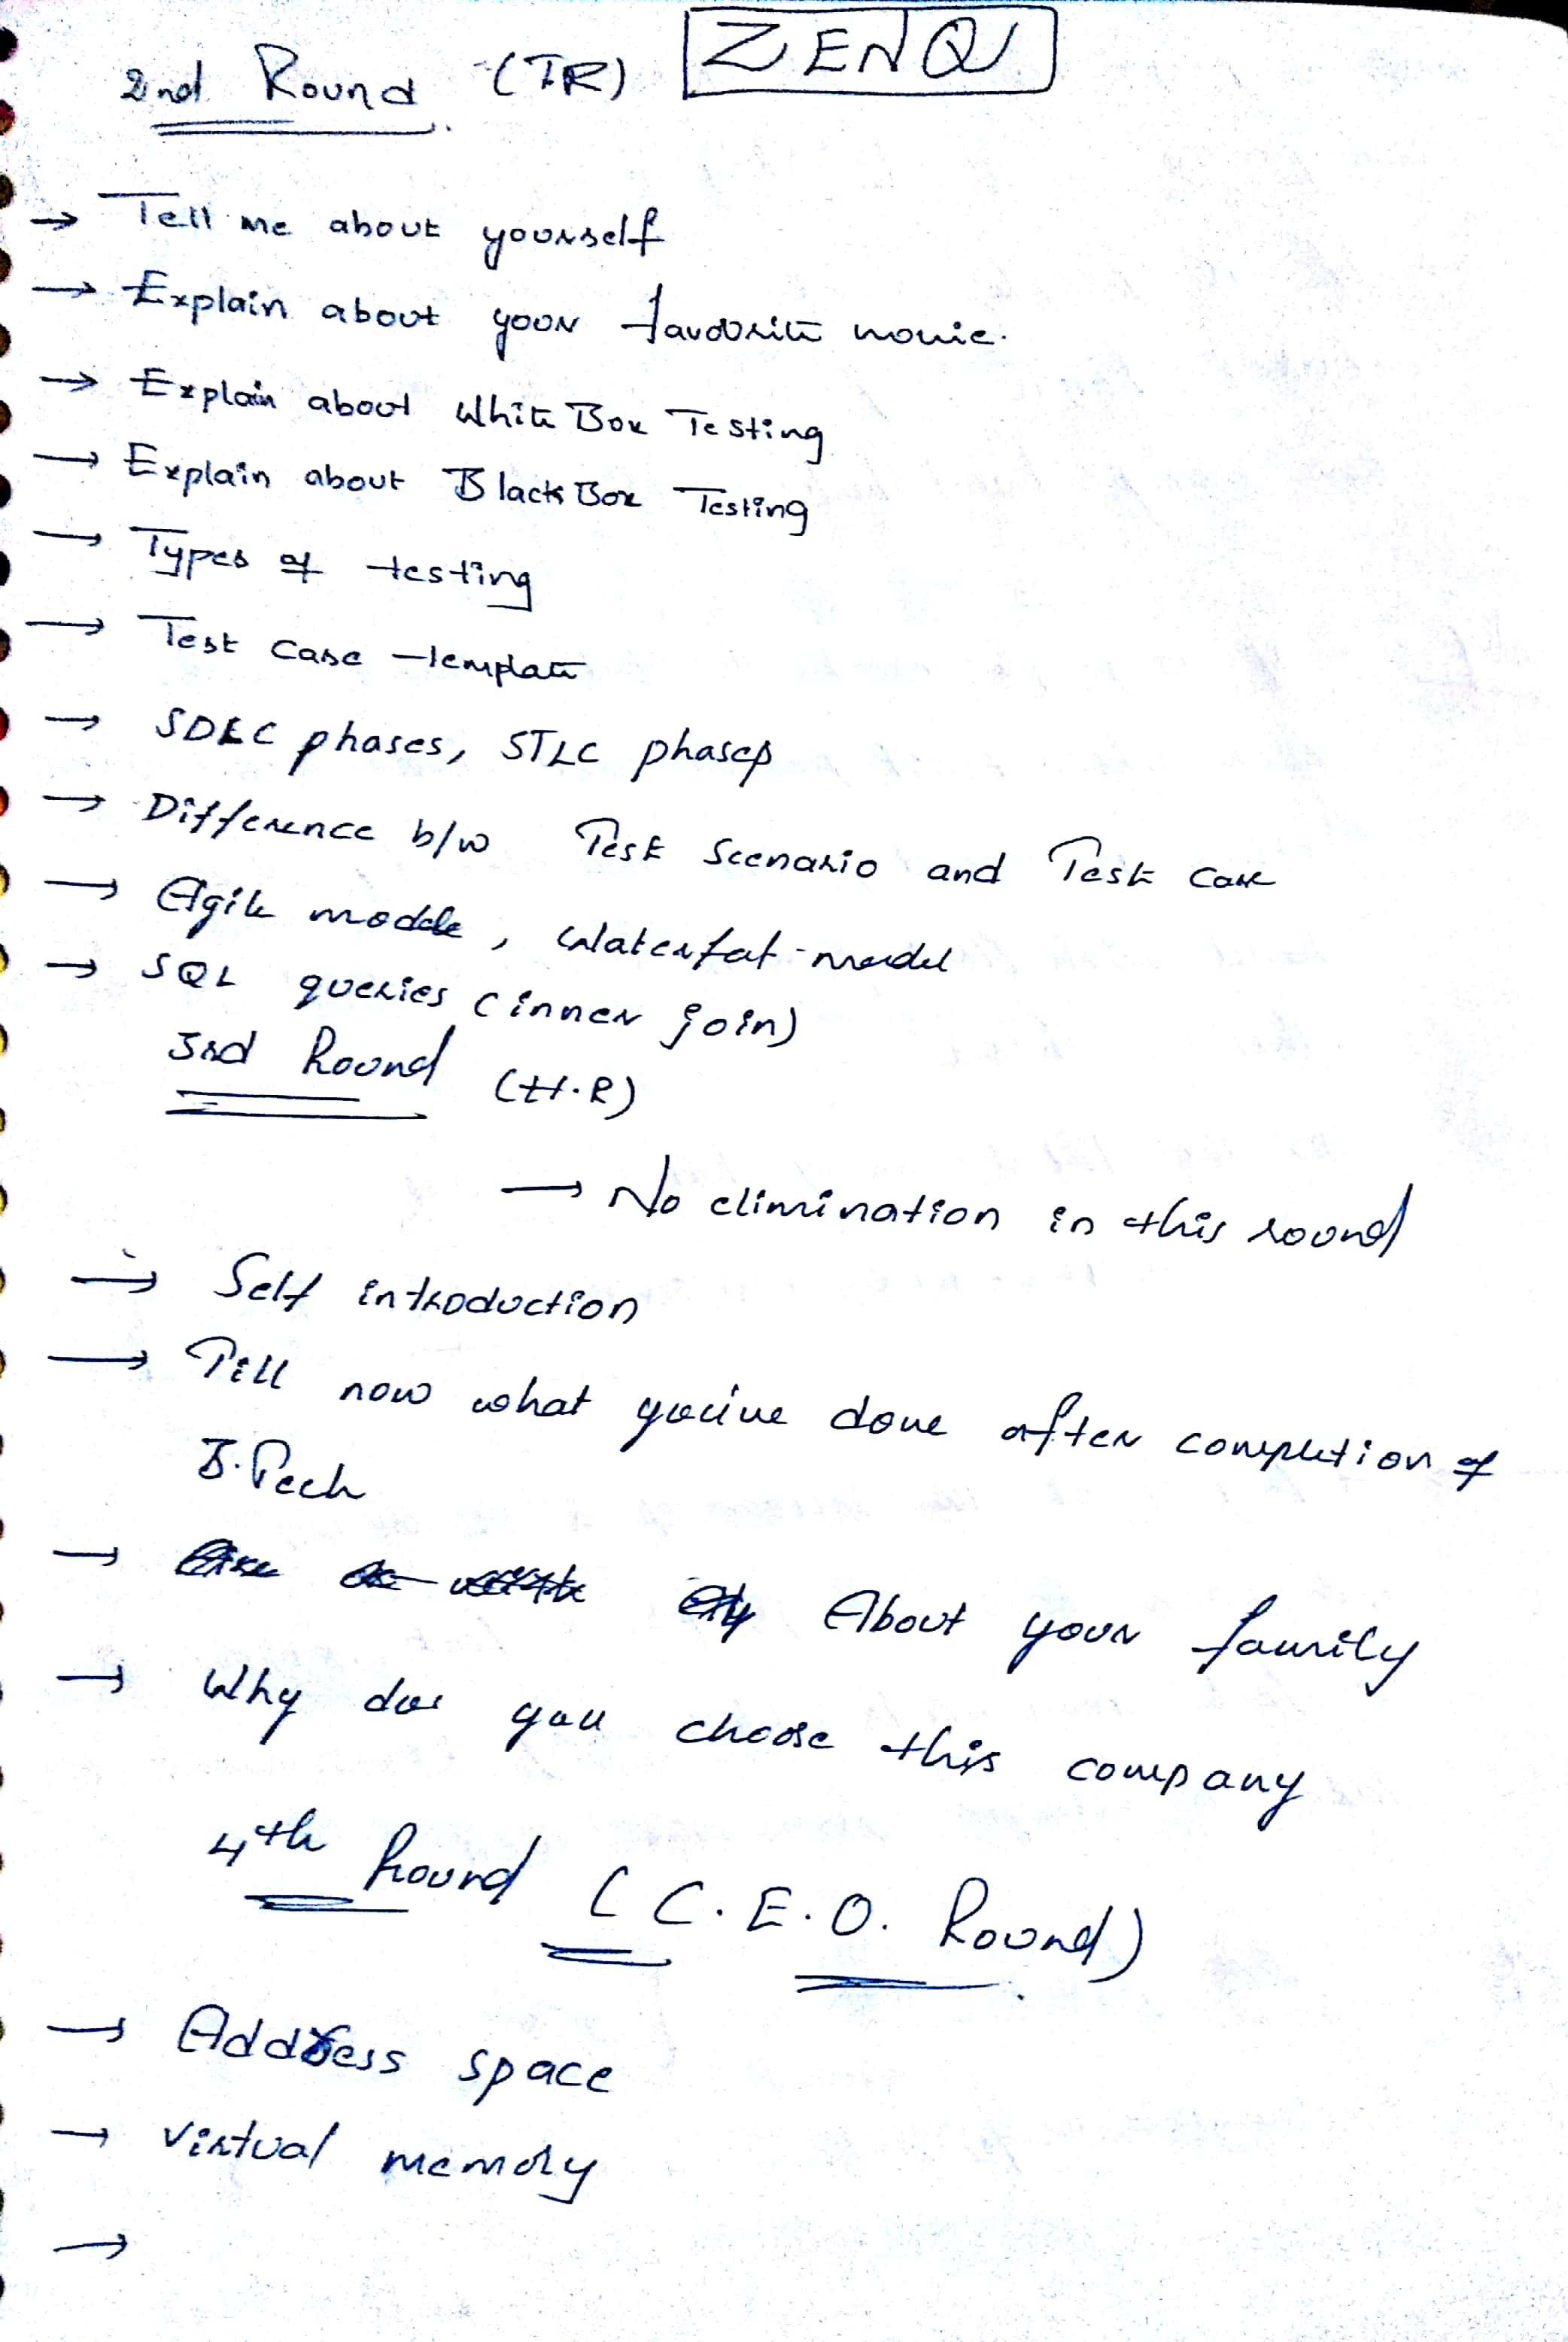 2nd Round (TR) ZENQ
→ Tell me about yourself
→ Explain about your favourite movie.
→ Explain about White Box Testing
→ Explain about Black Box Testing
→ Types of testing
→ Test Case template
→ SDLC phases, STLC phases
→ Difference b/w Test Scenario and Test Case
→ Agile model, Waterfall model
→ SQL queries (inner join)
3rd Round (H.R)
→ No elimination in this round
→ Self introduction
→ Till now what you've done after completion of
B.Tech
→ About your family
→ Why do you choose this company
4th Round (C.E.O. Round)
→ Address space
→ Virtual memory
→